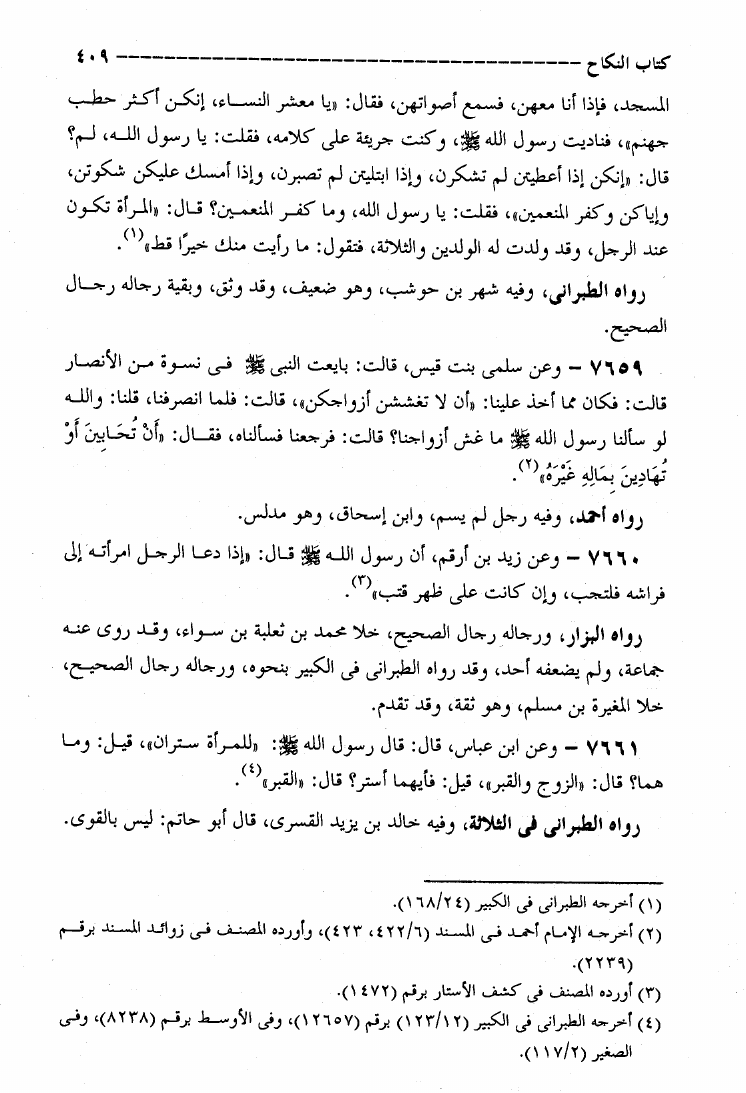 كتاب النكاح ------------------------------------------ ٤٠٩
المسجد، فإذا أنا معهن، فسمع أصواتهن، فقال: «يا معشر النساء، إنكن أكثر حطب
جهنم»، فناديت رسول الله ﷺ، وكنت جريئة على كلامه، فقلت: يا رسول الله، لم؟
قال: «إنكن إذا أعطيتن لم تشكرن، وإذا ابتليتن لم تصبرن، وإذا أمسك عليكن شكوتن،
وإياكن وكفر المنعمين»، فقلت: يا رسول الله، وما كفر المنعمين؟ قال: «المرأة تكون
عند الرجل، وقد ولدت له الولدين والثلاثة، فتقول: ما رأيت منك خيرًا قط»(١).
رواه الطبرانى، وفيه شهر بن حوشب، وهو ضعيف، وقد وثق، وبقية رجاله رجال
الصحيح.
٧٦٥٩ – وعن سلمى بنت قيس، قالت: بايعت النبى ﷺ فى نسوة من الأنصار
قالت: فكان مما أخذ علينا: «أن لا تغششن أزواجكن»، قالت: فلما انصرفنا، قلنا: والله
لو سألنا رسول الله ﷺ ما غش أزواجنا؟ قالت: فرجعنا فسألناه، فقال: «أَنْ تُحَابِينَ أَوْ
تُهَادِينَ بِمَالِهِ غَيْرَهُ»(٢).
رواه أحمد، وفيه رجل لم يسم، وابن إسحاق، وهو مدلس.
٧٦٦٠ – وعن زيد بن أرقم، أن رسول الله ﷺ قال: «إذا دعا الرجل امرأته إلى
فراشه فلتجب، وإن كانت على ظهر قتب»(٣).
رواه البزار، ورجاله رجال الصحيح، خلا محمد بن ثعلبة بن سواء، وقد روى عنه
جماعة، ولم يضعفه أحد، وقد رواه الطبرانى فى الكبير بنحوه، ورجاله رجال الصحيح،
خلا المغيرة بن مسلم، وهو ثقة، وقد تقدم.
٧٦٦١ – وعن ابن عباس، قال: قال رسول الله ﷺ: «للمرأة ستران»، قيل: وما
هما؟ قال: «الزوج والقبر»، قيل: فأيهما أستر؟ قال: «القبر»(٤).
رواه الطبرانى فى الثلاثة، وفيه خالد بن يزيد القسرى، قال أبو حاتم: ليس بالقوى.
(١) أخرجه الطبرانى فى الكبير (١٦٨/٢٤).
(٢) أخرجه الإمام أحمد فى المسند (٤٢٢/٦، ٤٢٣)، وأورده المصنف فى زوائد المسند برقم
(٢٢٣٩).
(٣) أورده المصنف فى كشف الأستار برقم (١٤٧٢).
(٤) أخرجه الطبرانى فى الكبير (١٢٣/١٢) برقم (١٢٦٥٧)، وفى الأوسط برقم (٨٢٣٨)، وفى
الصغير (١١٧/٢).